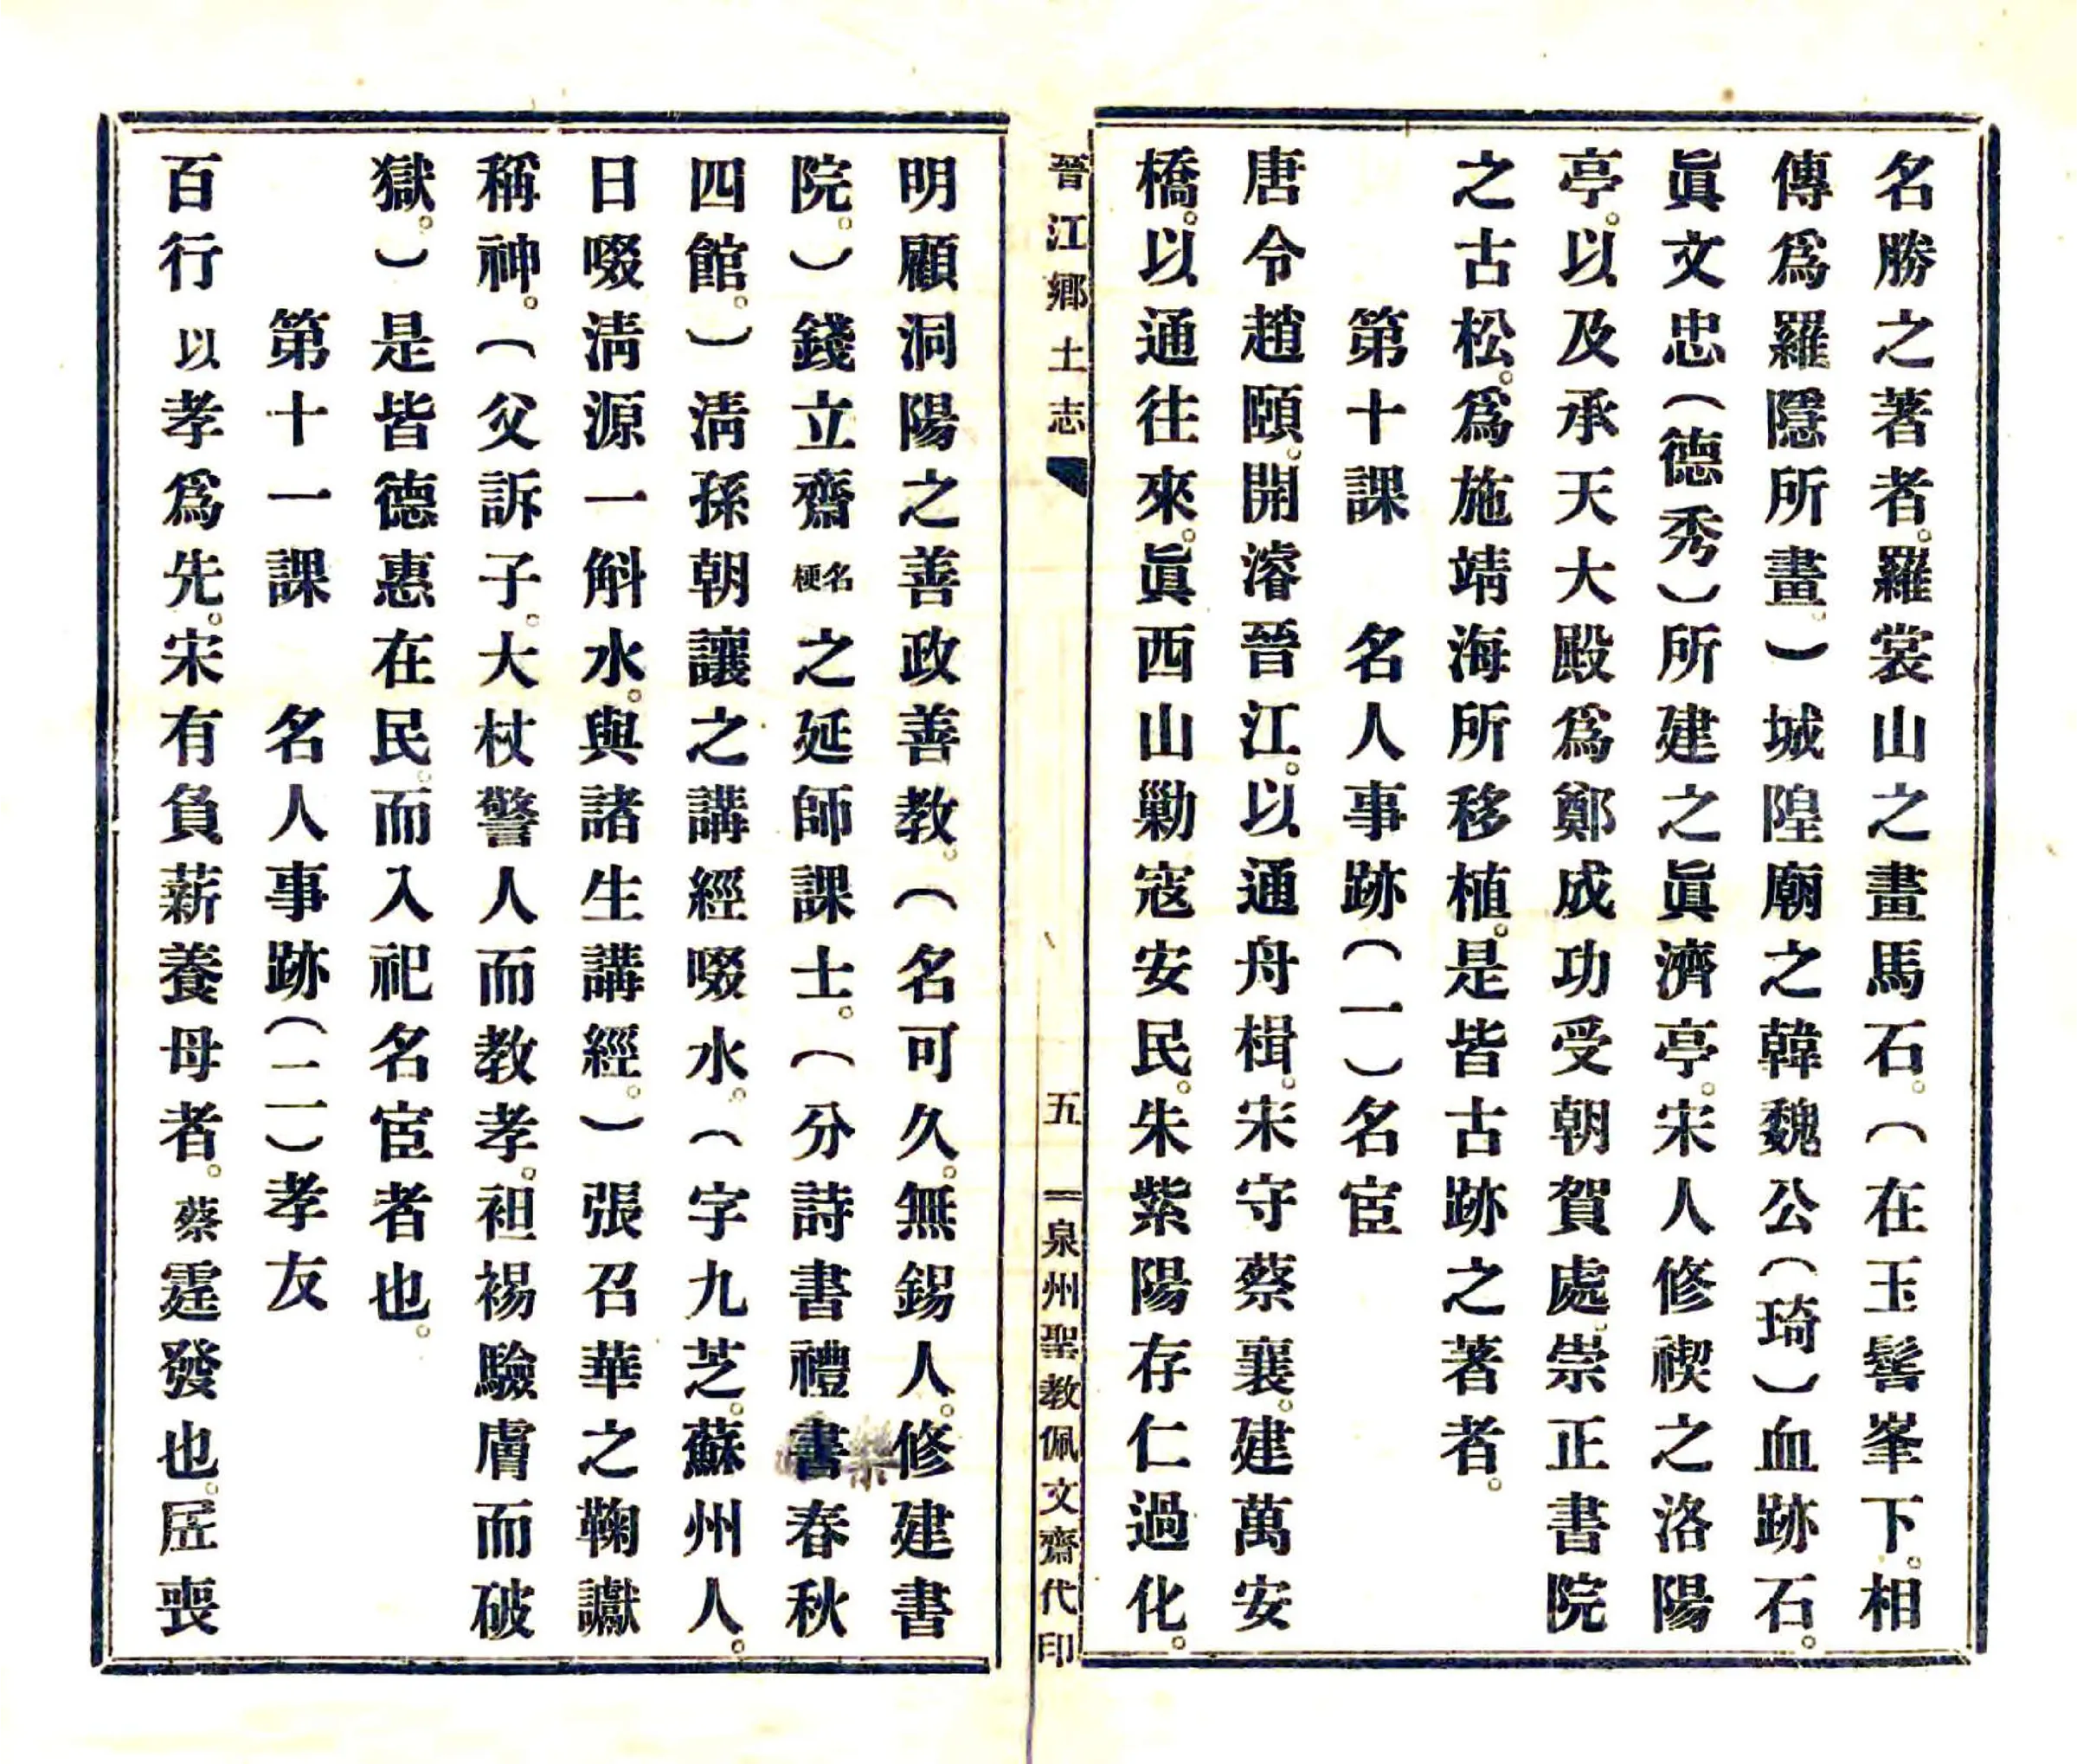 名勝之著者。羅裳山之畫馬石。（在玉髻峯下。相
傳爲羅隱所畫。）城隍廟之韓魏公（琦）血跡石。
眞文忠（德秀）所建之眞濟亭。宋人修禊之洛陽
亭。以及承天大殿爲鄭成功受朝賀處。崇正書院
之古松。爲施靖海所移植。是皆古跡之著者。
第十課　名人事跡（一）名宦
唐令趙頤。開濬晉江。以通舟楫。宋守蔡襄。建萬安
橋。以通往來。眞西山勦寇安民。朱紫陽存仁過化。
晉江鄉土志　五　泉州聖教佩文齋代印
明顧洞陽之善政善教。（名可久。無錫人。修建書
院。）錢立齋名梗之延師課士。（分詩書禮書春秋
四館。）淸孫朝讓之講經啜水。（字九芝。蘇州人。
日啜淸源一斛水。與諸生講經。）張召華之鞠讞
稱神。（父訴子。大杖警人而教孝。袒裼驗膚而破
獄。）是皆德惠在民。而入祀名宦者也。
第十一課　名人事跡（二）孝友
百行以孝爲先。宋有負薪養母者。蔡霆發也。居喪